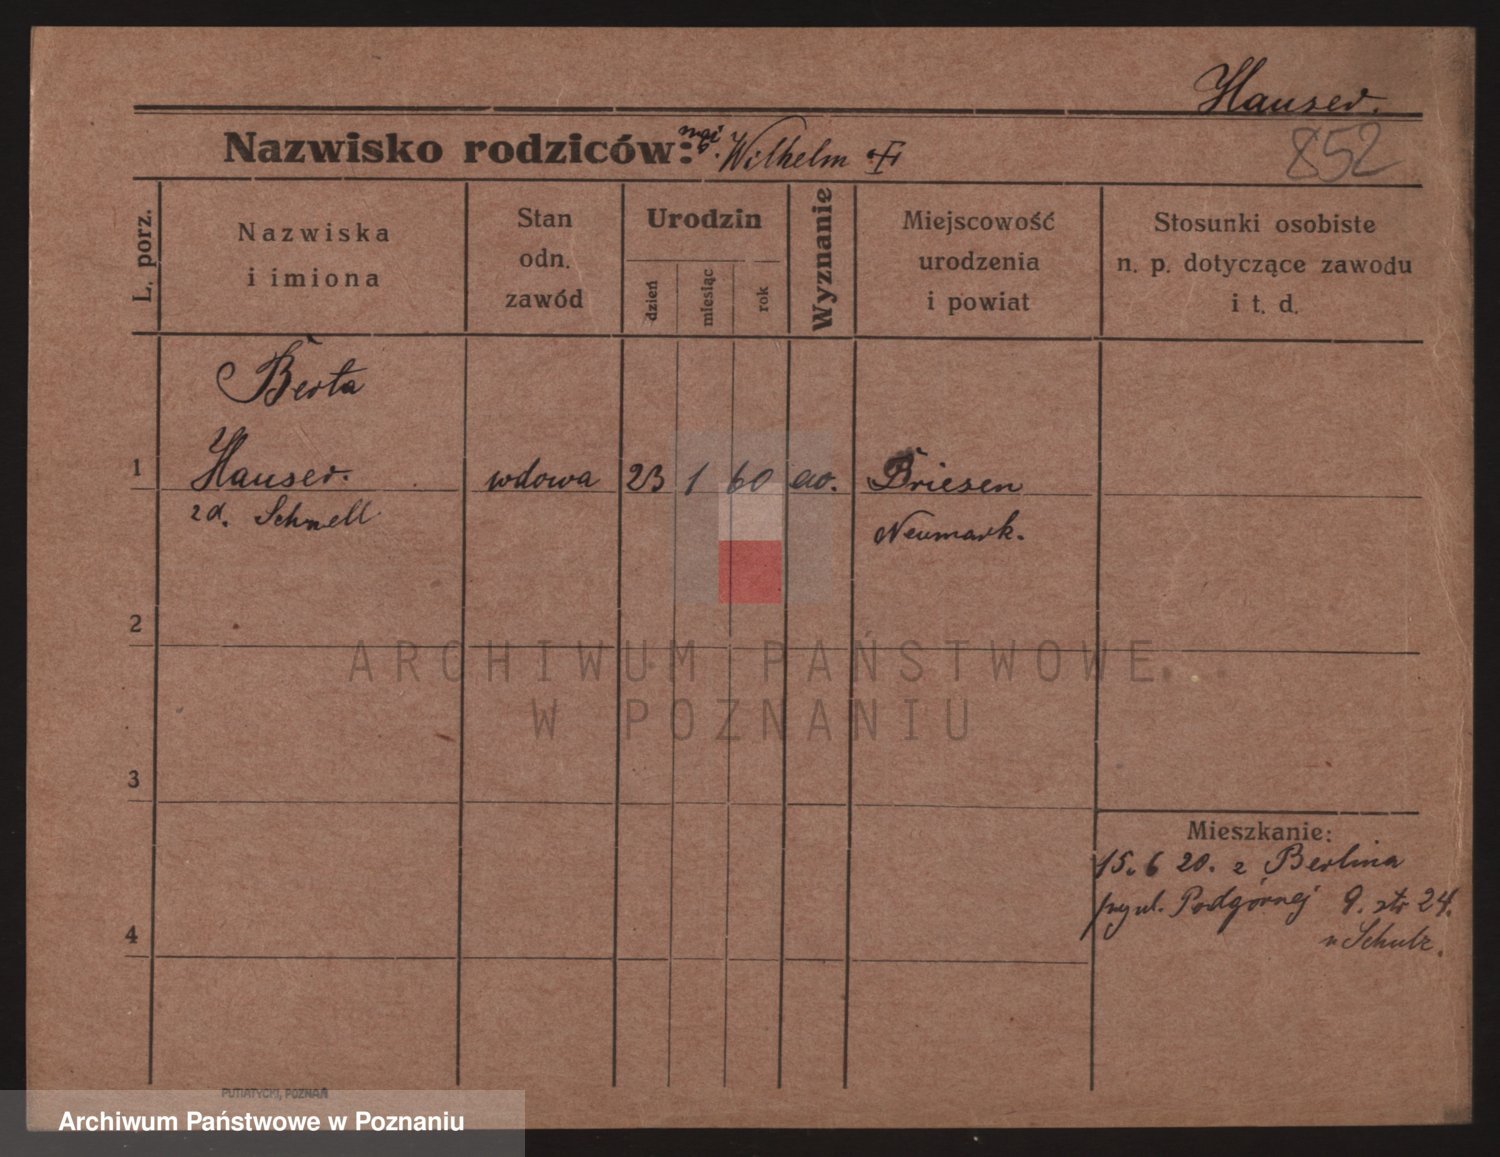 Hauser.
Nazwisko rodziców: Wilhelm
852
L. porz.
Nazwiska
i imiona
Stan
odn.
zawód
Urodzin
dzień
miesiąc
rok
Wyznanie
Miejscowość
urodzenia
i powiat
Stosunki osobiste
n. p. dotyczące zawodu
i t. d.
Berta
1 Hauser. wdowa 23 1 60 Briesen
zd. Schnell Neumark.
2
ARCHIWUM PAŃSTWOWE
W POZNANIU
3
Mieszkanie:
15. 6 20. z Berlina
Podgórnej 9. str 24.
4
u Schulz.
PUTIATYCKI, POZNAŃ
Archiwum Państwowe w Poznaniu